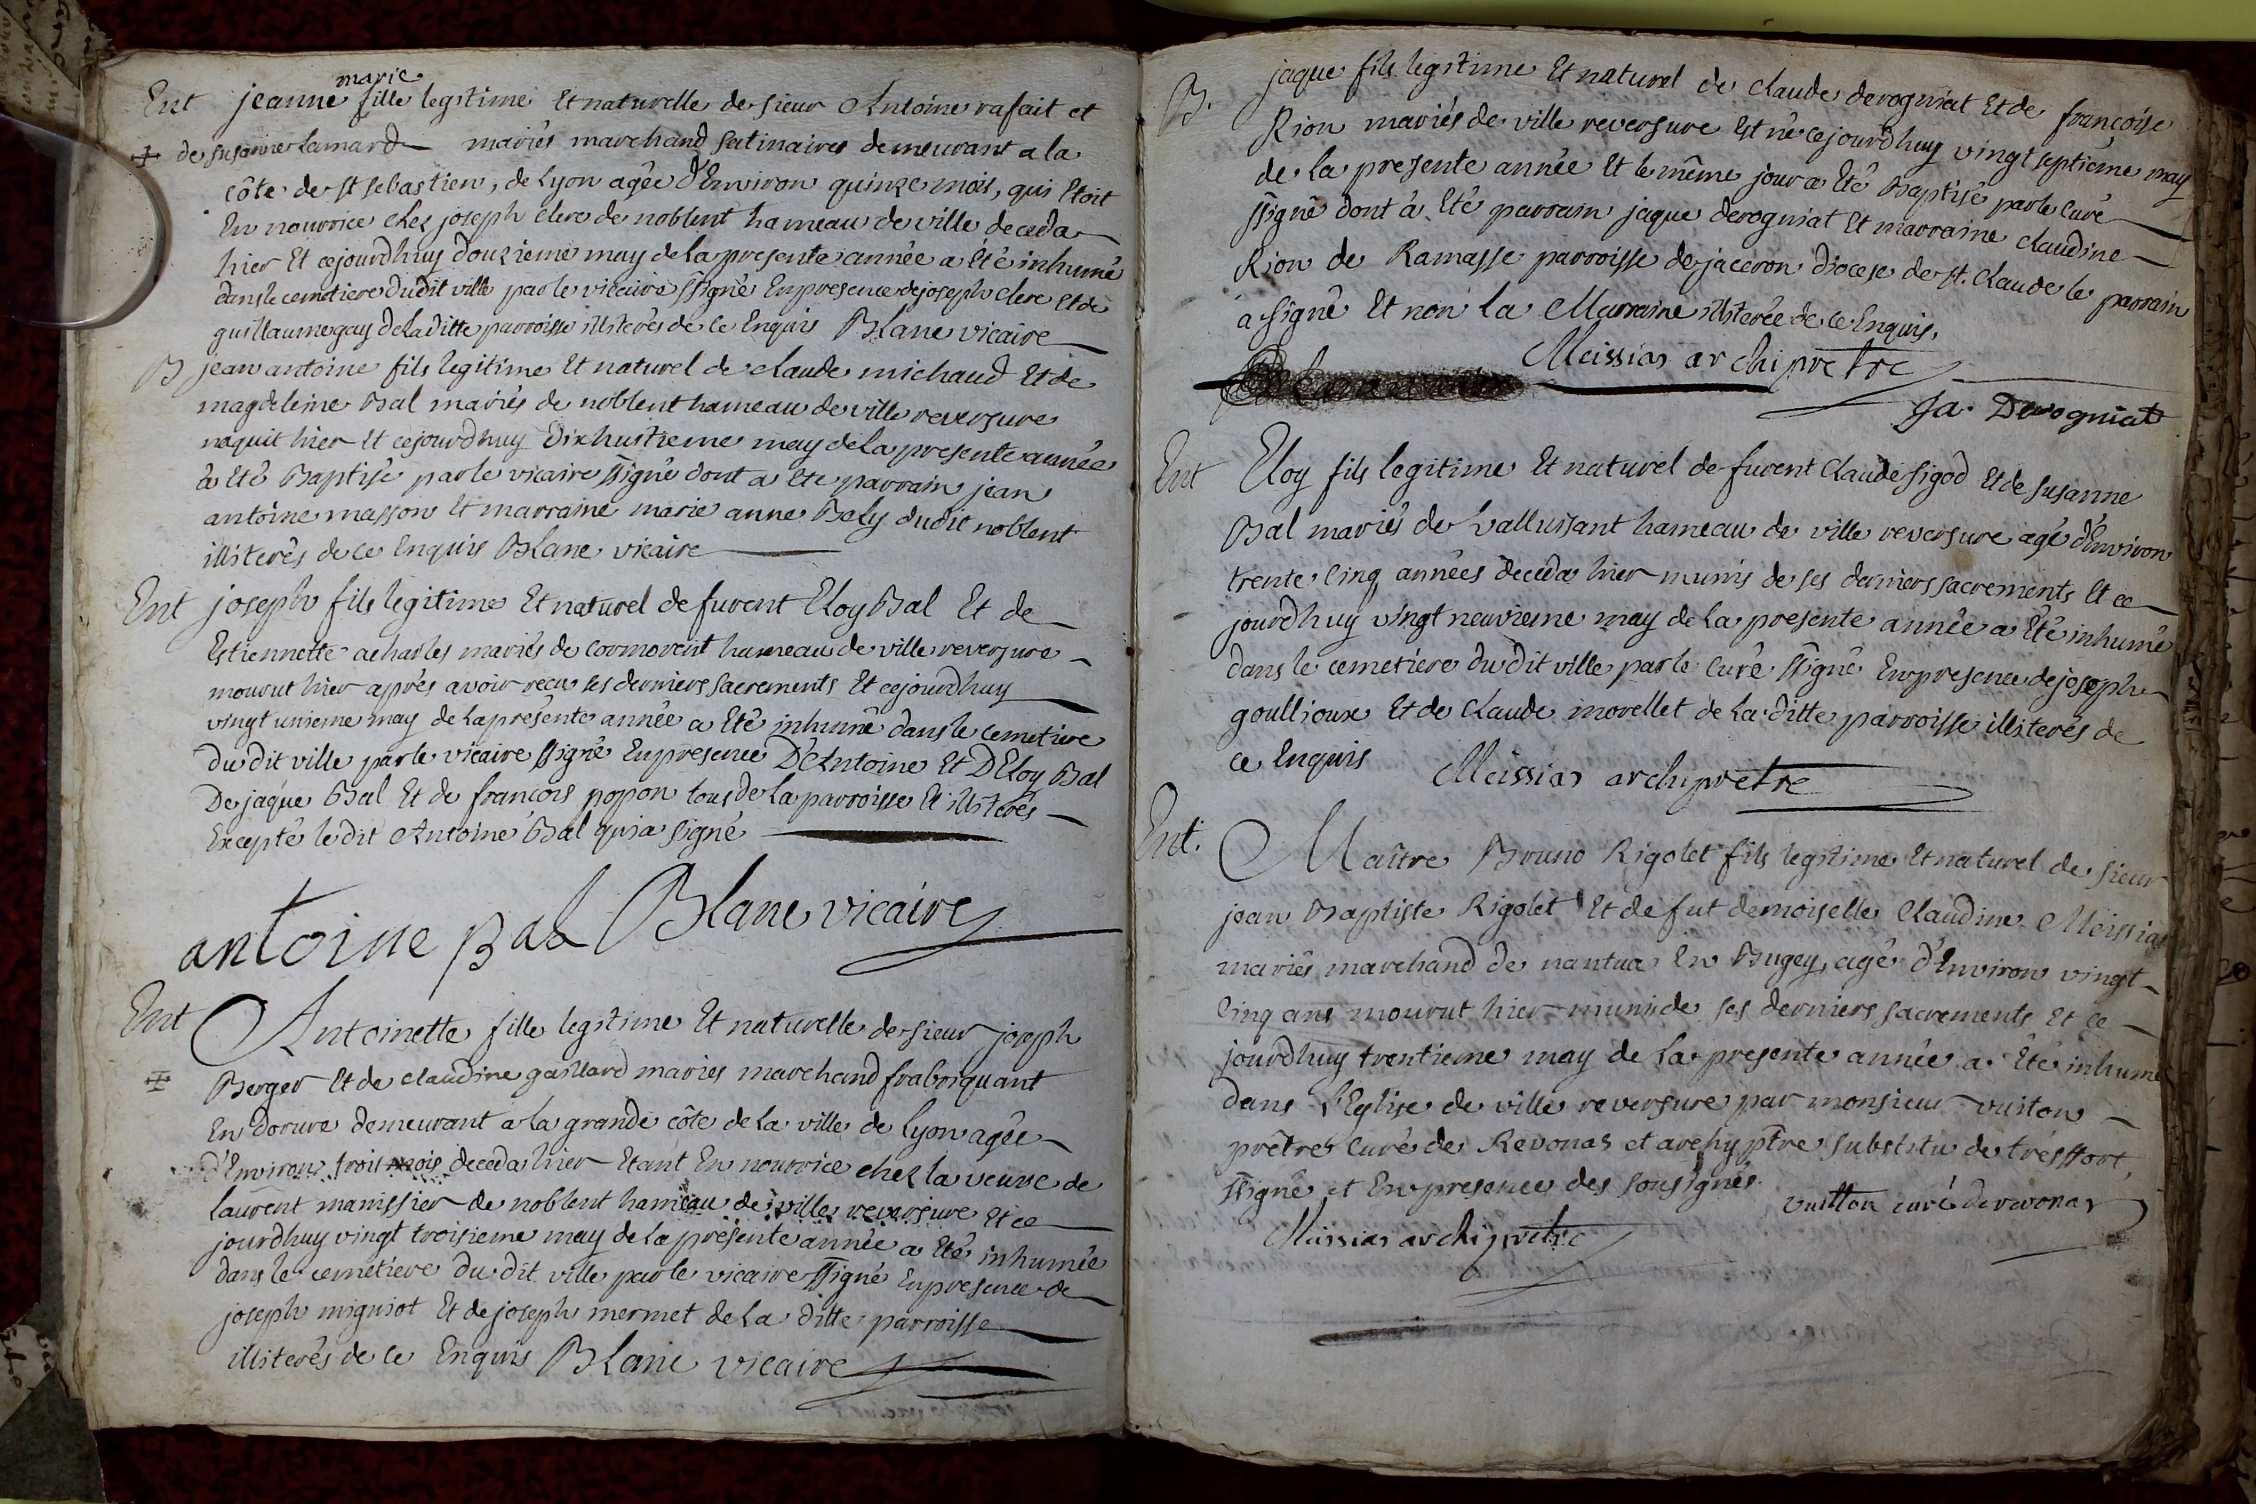 Ent jeanne marie fille legitime et naturelle de sieur Antoine rafait et
de susanne Lamard mariés marchand satinaires demeurant a la
côte de st sebastien, de Lyon agée d'Environ quinze mois, qui Etoit
En nourrice chez joseph clerc de noblent hameau de ville deceda
hier Et cejourdhuy douzieme may de la presente année a Eté inhumé
dans le cemetiere dudit ville par le vicaire ssigné En presence de joseph clerc et de
guillaume gay de La ditte parroisse illiterés de ce Enquis Blanc vicaire
B jean antoine fils legitime Et naturel de claude michaud Et de
magdeleine Bal mariés de noblent hameau de ville reversure
naquit hier Et cejourdhuy Dixhuitieme may de La presente année
a Eté Baptisé par le vicaire ssigné dont a Ete parrain jean
antoine masson Et marraine marie anne Bely dudit noblent
illiterés de ce Enquis Blanc vicaire
Ent joseph fils legitime Et naturel de furent Eloy Bal Et de
Estiennette acharles mariés de cormorent hameau de ville reversure
mourut hier aprés avoir recu ses derniers sacrements Et cejourdhuy
vingt unieme may de La presente année a Eté inhumé dans le cemetiere
du dit ville par le vicaire ssigné En presence D'Antoine Et D'Eloy Bal
De jaque Bal Et de francois popon tous de La parroisse Et illiterés
Excepté le dit Antoine Bal qui a signé
antoine Bal Blanc vicaire
Ent Antoinette fille legitime Et naturelle de sieur joseph
Berger Et de claudine gaillard mariés marchand frabriquant
En dorure demeurant a la grande côte de la ville de Lyon agée
d'Environ trois mois deceda hier Etant En nourrice chez la veuve de
Laurent manissier de noblent hameau de ville reversure Et ce
jourdhuy vingt troisieme may de La presente année a Eté inhumée
dans le cemetiere du dit ville par le vicaire ssigné En presence de
joseph migniot Et de joseph mermet de La ditte parroisse
illiterés de ce Enquis Blanc vicaire
B. jaque fils legitime Et naturel de claude derogniat Et de francoise
Rion mariés de ville reversure Est né cejourdhuy vingt septieme may
de la presente année Et le même jour a Eté Baptisé par le Curé
ssigné dont à Eté parrain jaque derogniat Et marraine claudine
Rion de Ramasse parroisse de jaceron diocese de st. Claude le parrain
à signé Et non La Marraine illiterée de ce Enquis.
Meissias archipretre
Ja. Derogniat
Ent Eloy fils legitime Et naturel de furent Claude sigod Et de susanne
Bal mariés de valluissant hameau de ville reversure agé d'Environ
trente Cinq années deceda hier munis de ses derniers sacrements Et ce
jourdhuy vingt neuvieme may de La presente année a Eté inhumé
dans le cemetiere du dit ville par le Curé ssigné En presence de joseph
goullioux Et de Claude morellet de La ditte parroisse illiterés de
ce Enquis Meissias archipretre
Ent. Maître Bruno Rigolet fils legitime Et naturel de sieur
jean Baptiste Rigolet Et de fut demoiselle Claudine Meissias
mariés marchand de nantua En Bugey, agé d'Environ vingt
Cinq ans mourut hier muni de ses derniers sacrements Et ce
jourdhuy trentieme may de La presente année a Eté inhumé
dans L'Eglise de ville reversure par monsieur vuiton
prêtre Curé de Revonas et archyptre substitu de tréffort,
ssigné et En presence des soussignés
vuitton curé de revonas
Meissias archipretre